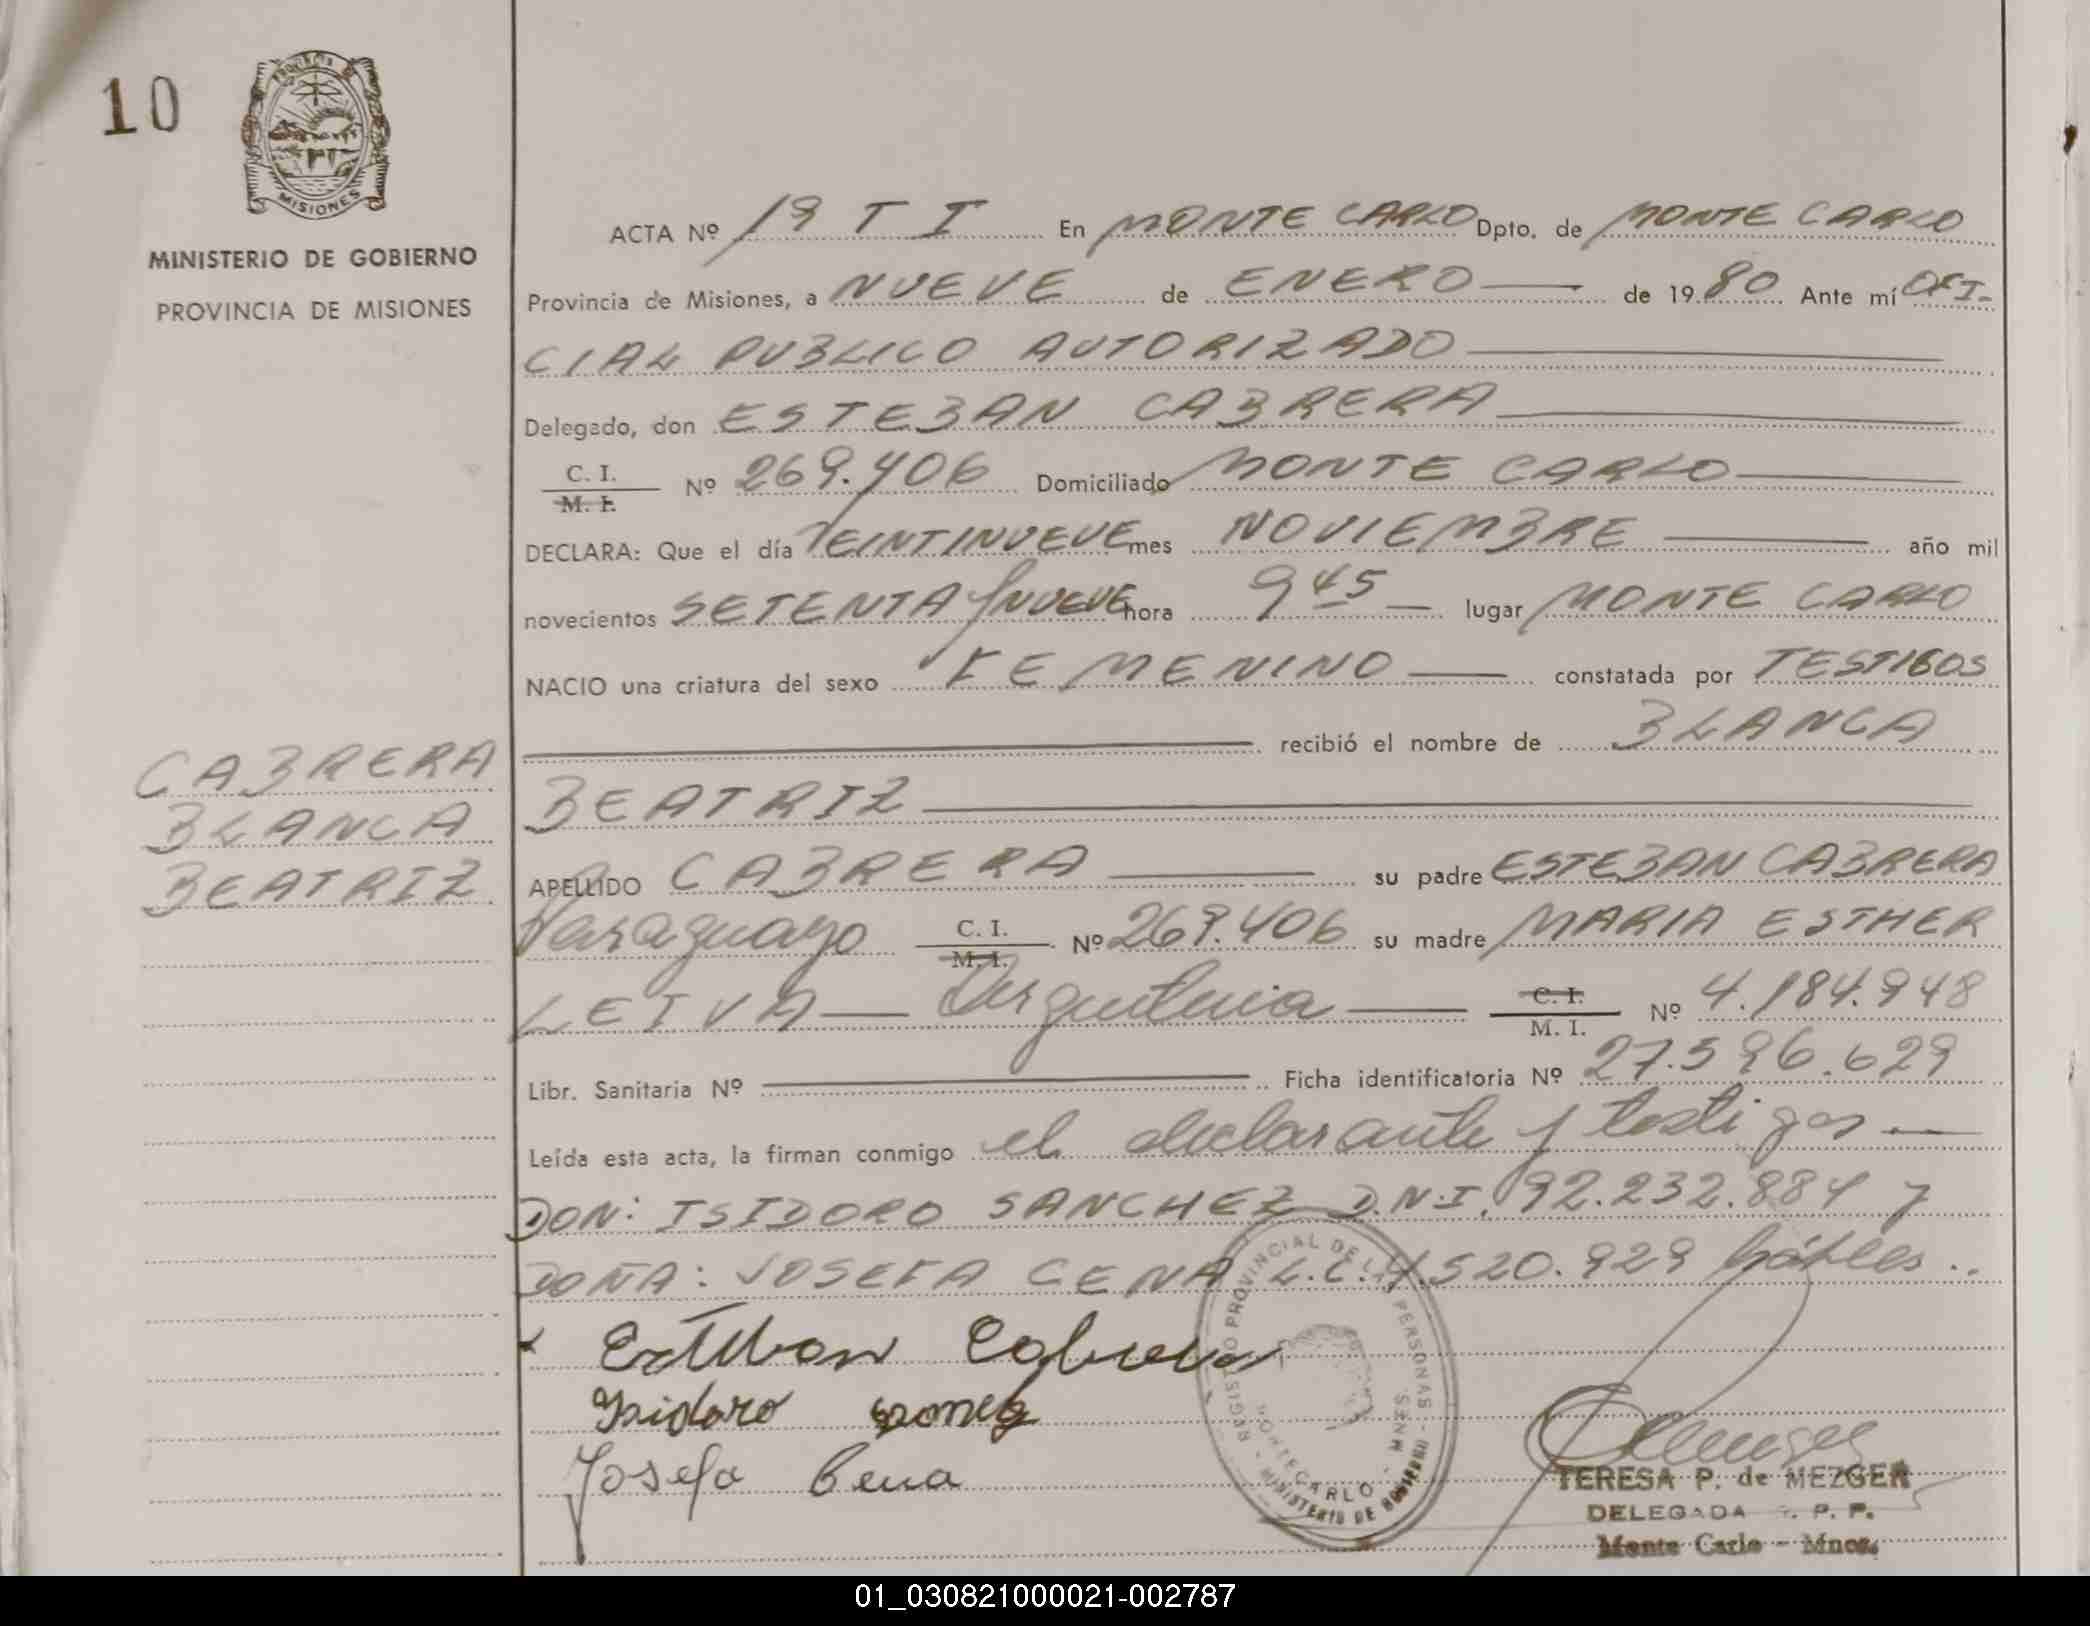 10
PROVINCIA
MISIONES
MINISTERIO DE GOBIERNO
PROVINCIA DE MISIONES
ACTA Nº 19 T I En MONTE CARLO Dpto. de MONTE CARLO
Provincia de Misiones, a NUEVE de ENERO de 1980 Ante mí OFI-
CIAL PUBLICO AUTORIZADO
Delegado, don ESTEBAN CABRERA
C. I.
M. I. Nº 269.406 Domiciliado MONTE CARLO
DECLARA: Que el día VEINTINUEVE mes NOVIEMBRE año mil
novecientos SETENTA y NUEVE hora 9 45 lugar MONTE CARLO
NACIO una criatura del sexo FEMENINO constatada por TESTIGOS
recibió el nombre de BLANCA
BEATRIZ
CABRERA
BLANCA
BEATRIZ
APELLIDO CABRERA su padre ESTEBAN CABRERA
Paraguayo C. I.
M. I. Nº 269.406 su madre MARIA ESTHER
LEIVA Argentina C. I.
M. I. Nº 4.184.948
Libr. Sanitaria Nº Ficha identificatoria Nº 27.596.629
Leída esta acta, la firman conmigo el declarante y testigos
DON: ISIDORO SANCHEZ D.N.I. 92.232.884 y
DOÑA: JOSEFA CENA L.C. 4.520.929 hábiles..
Esteban Cabrera
Isidoro
Josefa Cena
REGISTRO PROVINCIAL DE LAS PERSONAS
MONTECARLO - MNES.
MINISTERIO DE GOBIERNO
TERESA P. de MEZGER
DELEGADA R. P. P.
Monte Carlo - Mnes.
01_030821000021-002787